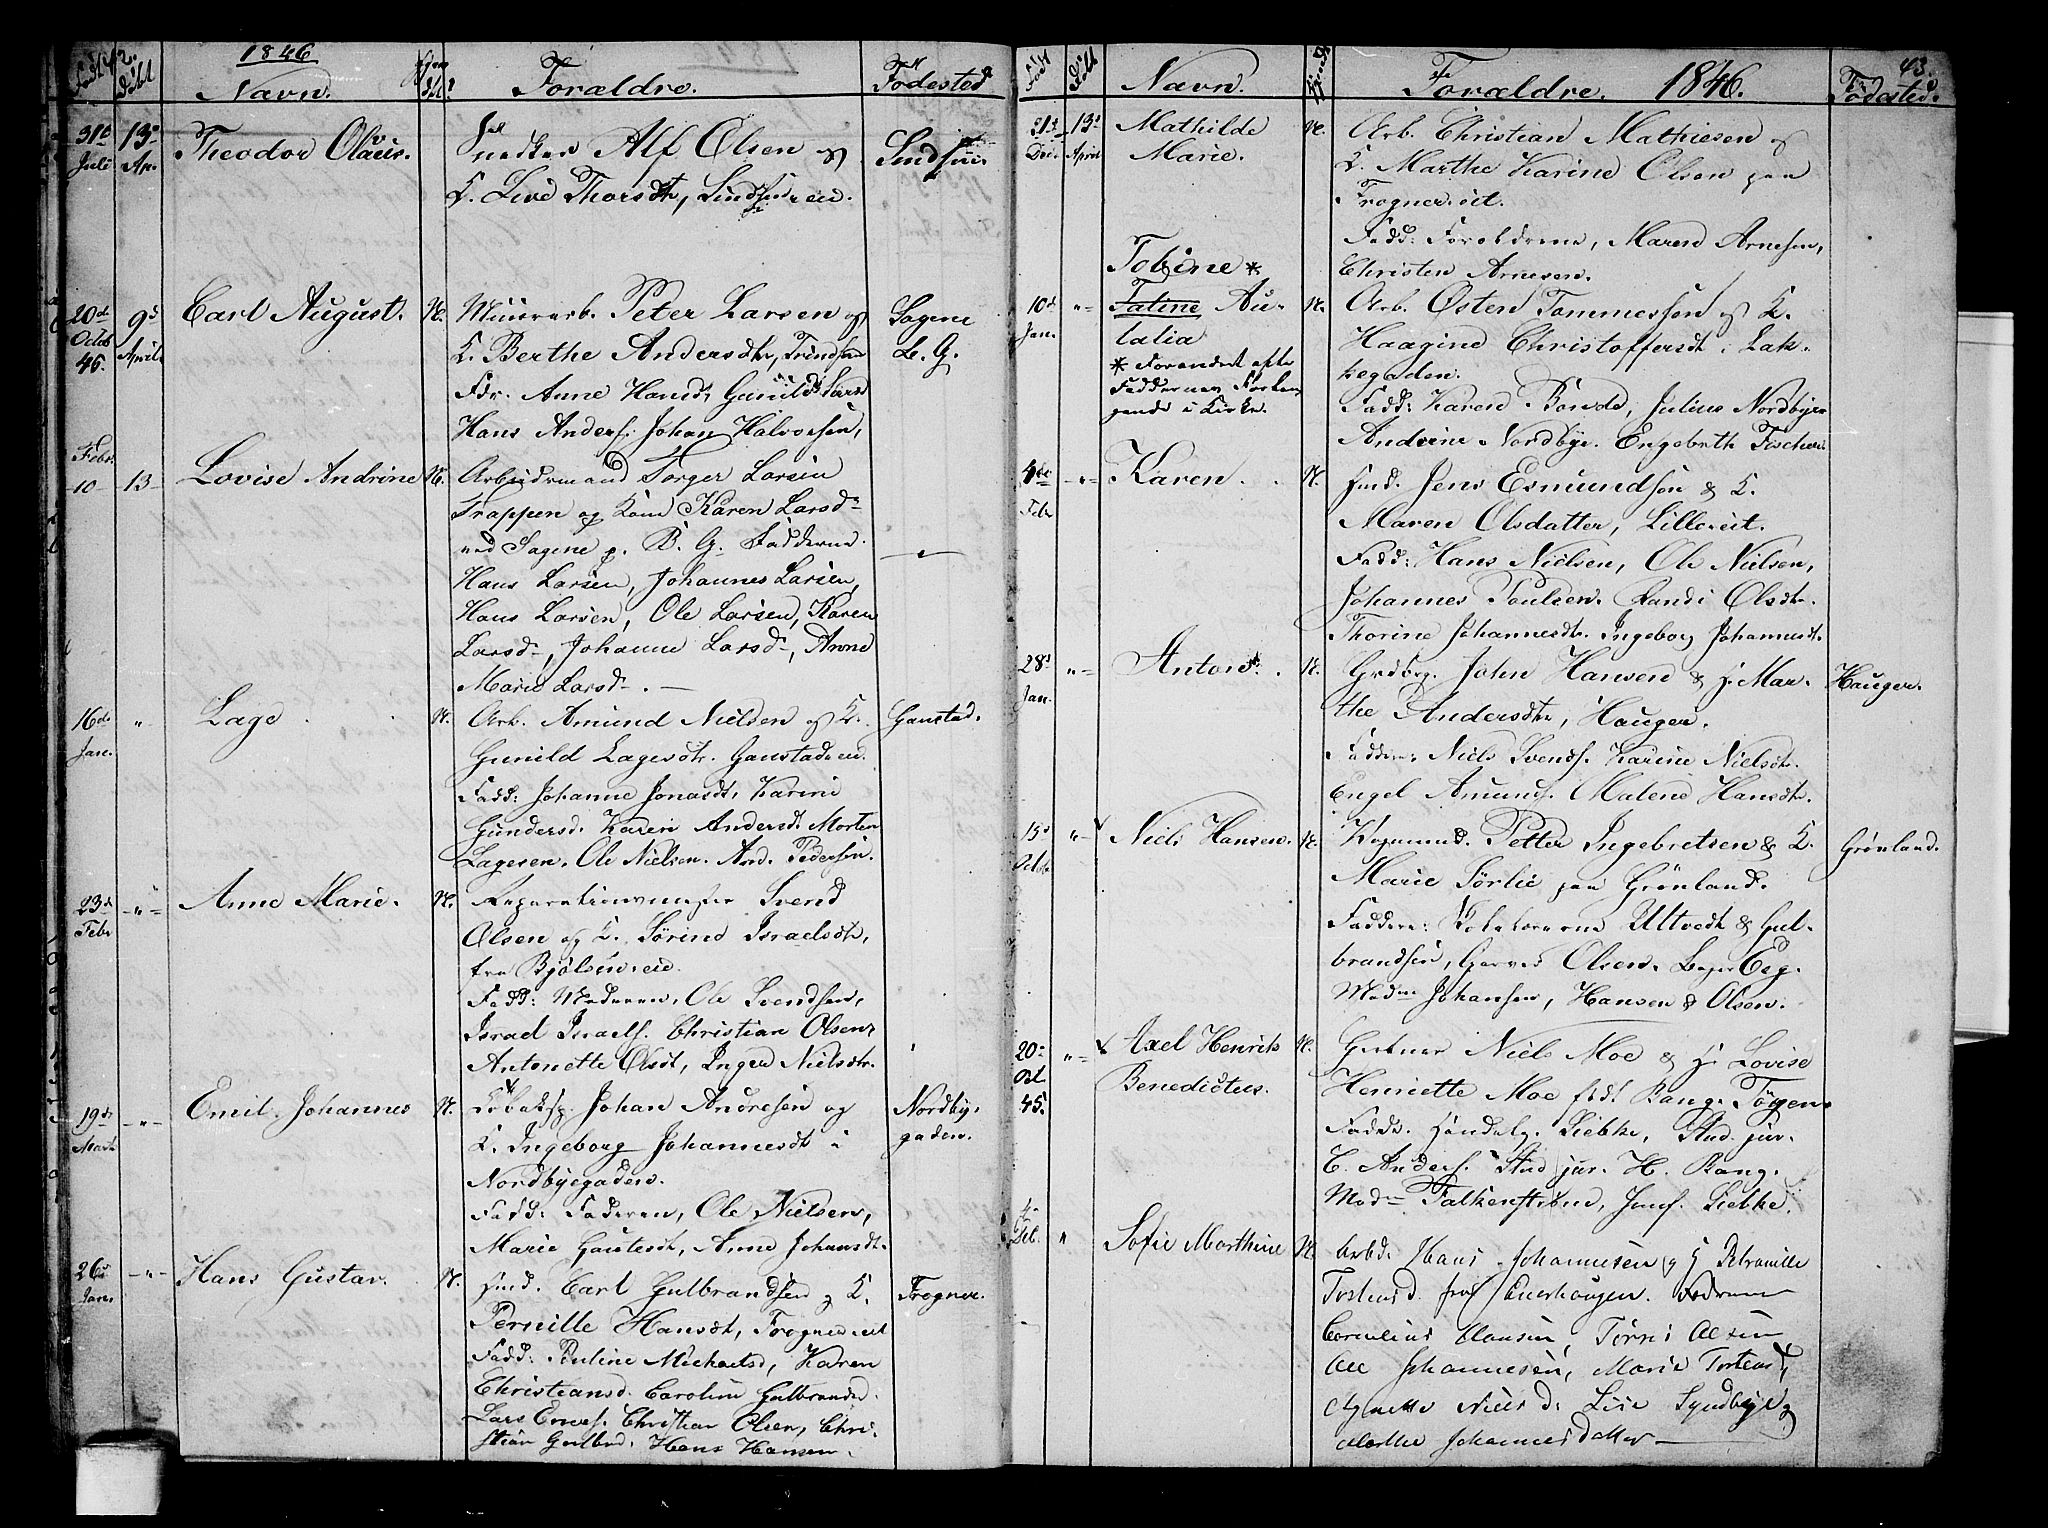 42.
1846
Født
Døbt
Navn.
Forældre.
Fødested
31te
Juli
13de
Ap.
Theodor Olaus.
Snedker Alf Olsen og
K. Live Thorsdtr,
20de
Octob
45.
9d
April
Carl August.
N.
Murerarb. Peter Larsen og
K. Berthe Andersdtr,
Fdr. Anne Hansdt, Gunild
Hans Anders. Johan Halvorsen,
Sagene
B. G.
Febr.
10
13
Lovise Andrine
N.
Arbeidsmand Torger Larsen
Trappen og Kone Karen Larsd-
ved Sagene p. B. G. Fadderne
Hans Larsen, Johannes Larsen,
Hans Larsen, Ole Larsen, Karen
Larsd-, Johanne Larsd-, Anne
Marie Larsd-. —
16de
Jan.
"
Lage
N.
Arb. Amund Nielsen og K.
Gunild Lagesdtr. Gaustadeie.
Fadd: Johanne Jonasdt, Karine
Gundersd. Karen Andersdt. Morten
Lagesen. Ole Nielsen. And. Pedersen.
Gaustad.
23de
Febr
-"-
Anne Marie.
N.
Svend
Olsen og K. Sørine Israelsdtr,
fra Bjølseneie.
Fadd: Moderen, Ole Svendsen,
Israel Israels. Christian Olsen,
Antonette Olsdt, Inger Nielsdtr.
19de
Marts
-"-
Emil Johannes
N.
Johan Andresen og
K. Ingeborg Johannesdt i
Nordbyegaden.
Fadd: Faderen, Ole Nielsen,
Marie Gautesdt, Anne Johansdt.
Nordby-
gaden.
26d
Jan.
-"-
Hans Gustav.
N.
Hmd. Carl Gulbrandsen og K.
Pernille Hansdt, Frogner eie
Fadd: Pauline Michaelsd, Karen
Christiansd. Caroline Gulbrandsd.
Lars Christian Olsen, Chri-
stian Gulbrd. Hans Hansen.
Frogner.
43.
Født
Døbt
Navn.
Forældre. 1846.
Fødested.
31d
Dec.
13d
April
Mathilde
Marie.
N.
Arb. Christian Mathiesen og
K. Marthe Karine Olsen paa
Frogner eie.
Fadd: Forældrene, Maren Arnesen,
Christen Arnesen.
10d
Jan.
"
Tobine *
Tatine Au-
lalia
* Forandret efter
Faddernes Forlan-
gende i Kirke.
N.
Arb. Østen Tommessen og K.
Haagine Christoffersdt. i Lak-
kegaden.
Fadd: Karen Bonde, Julius Nordbye
Andrine Nordbye. Engebreth Fischer.
4de
Febr
-"-
Karen.
N.
Hmd. Jens Esmundsen & K.
Maren Olsdatter, Lilleeie.
Fadd: Hans Nielsen, Ole Nielsen,
Johannes Poulsen. Randi Olsdtr.
Thorine Johannesdtr. Ingeborg Johannesdtr.
28d
Jan.
"
Anton.
N.
Grdbrg. John Hansen & H. Mar-
the Andersdtr, Hauger.
Faddere: Niels Svends. Karine Nielsdtr.
Engel Amunds. Malene Hansdtr.
Hauger.
15d
Octob.
"
Niels Hansen.
N.
Petter Ingebretsen & K.
Marie Sørlie paa Grønland.
Faddere: Ultvedt & Gul-
brandsen, Garver Olsen. Bager Eeg.
Madme Johansen, Hansen & Olsen.
Grønland.
20
Oct.
45.
"
Axel Henrik
Benedictus.
N.
Gartner Niels Moe & H. Lovise
Henriette Moe født Rang. Tøyen.
Faddr. Handelsb. Siebke, Stud. jur.
C. Anders. Stud jur. H. Rang.
Madme Falkenstein, Jomf. Siebke.
4
Feb.
"
Sofie Marthine
N.
Arbd. Hans Johannesen og K Petronille
Torstensd. fra Enerhougen. Fadrene
Cornelius Hansen, Tørris Olsen
Ole Johannesen, Marie Torstensd,
Agnette Niels d. Lise Syndbye og
Marthe Johannesdatter —